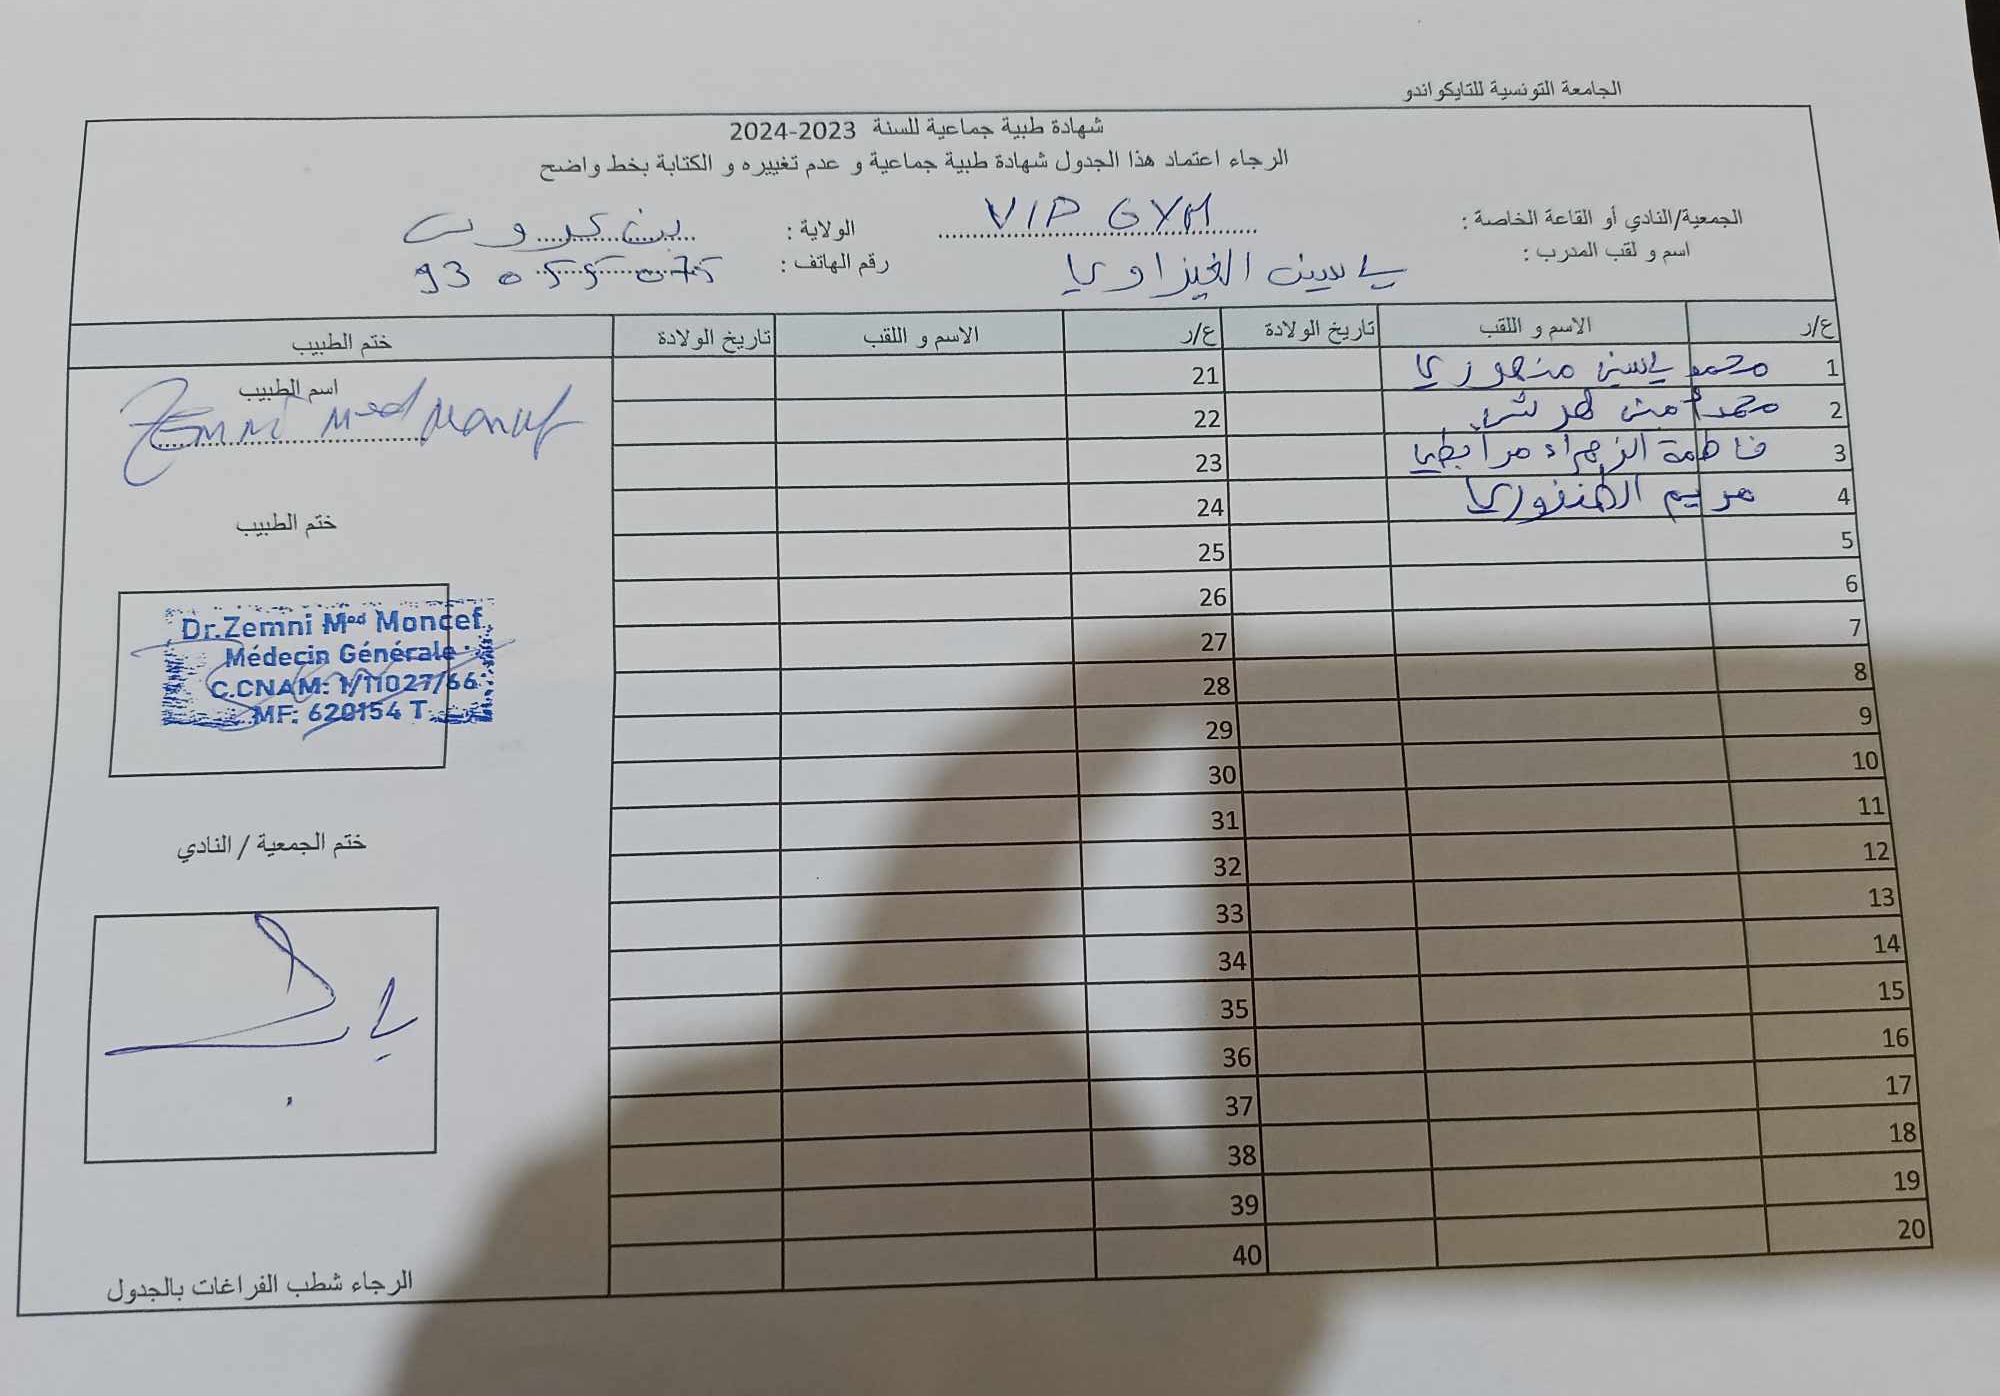 الجامعة التونسية للتايكواندو
شهادة طبية جماعية للسنة 2023-2024
الرجاء اعتماد هذا الجدول شهادة طبية جماعية و عدم تغييره و الكتابة بخط واضح
الجمعية/النادي أو القاعة الخاصة : VIP GYM الولاية :
اسم و لقب المدرب : ياسين الغيزاوي رقم الهاتف : 93 055 075
ع/ر الاسم و اللقب تاريخ الولادة ع/ر الاسم و اللقب تاريخ الولادة ختم الطبيب
1 محمد ياسين منصوري 21
2 محمد أمين 22
3 فاطمة الزهراء مرابطي 23
4 مريم 24
5 25
6 26
7 27
8 28
9 29
10 30
11 31
12 32
13 33
14 34
15 35
16 36
17 37
18 38
19 39
20 40
اسم الطبيب
Zemni Med Moncef
ختم الطبيب
Dr.Zemni Med Moncef
Médecin Générale
C.CNAM: 1/11027/66
MF: 620154 T
ختم الجمعية / النادي
الرجاء شطب الفراغات بالجدول